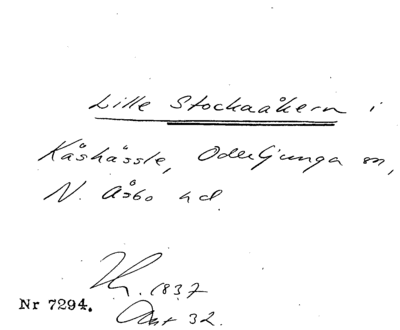 Lille Stockaåkern i
Kåshässle, Oderljunga sn,
N. Åsbo hd.
1837
Nr 7294.
Akt 32.